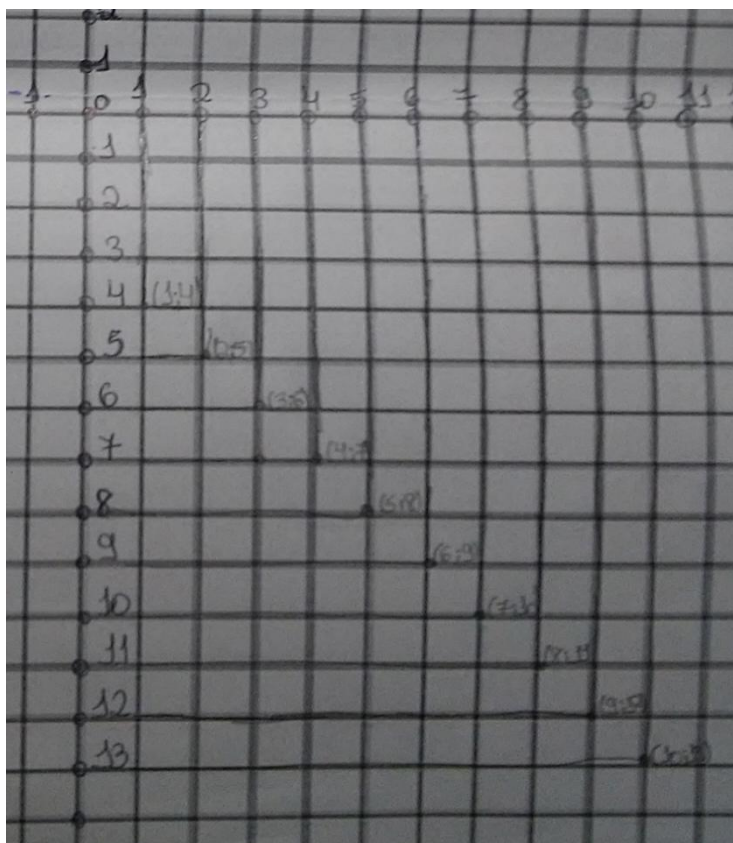 1
-1 0 1 2 3 4 5 6 7 8 9 10 11
1
2
3
4 (1;4)
5
6 (3;6)
7 (4;7
8 (5;8)
9 (6;9)
10 (7;10
11 (8;11
12
13